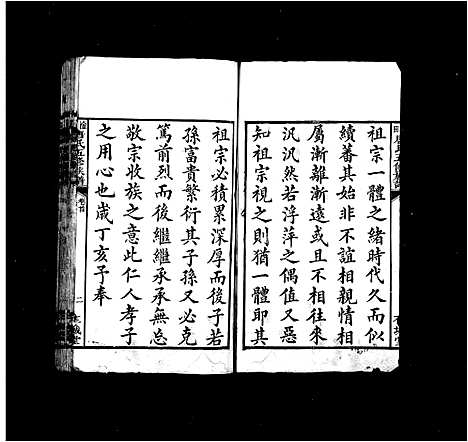 祖宗一體之緒時代久而似
續蕃其始非不誼相親情相
屬漸離漸遠或且不相往來
汎汎然若浮萍之偶值又惡
知祖宗視之則猶一體即其
祖宗必積累深厚而後子若
孫富貴繁衍其子孫又必克
篤前烈而後繼繼承承無忘
敬宗收族之意此仁人孝子
之用心也歲丁亥予奉
卷首
二